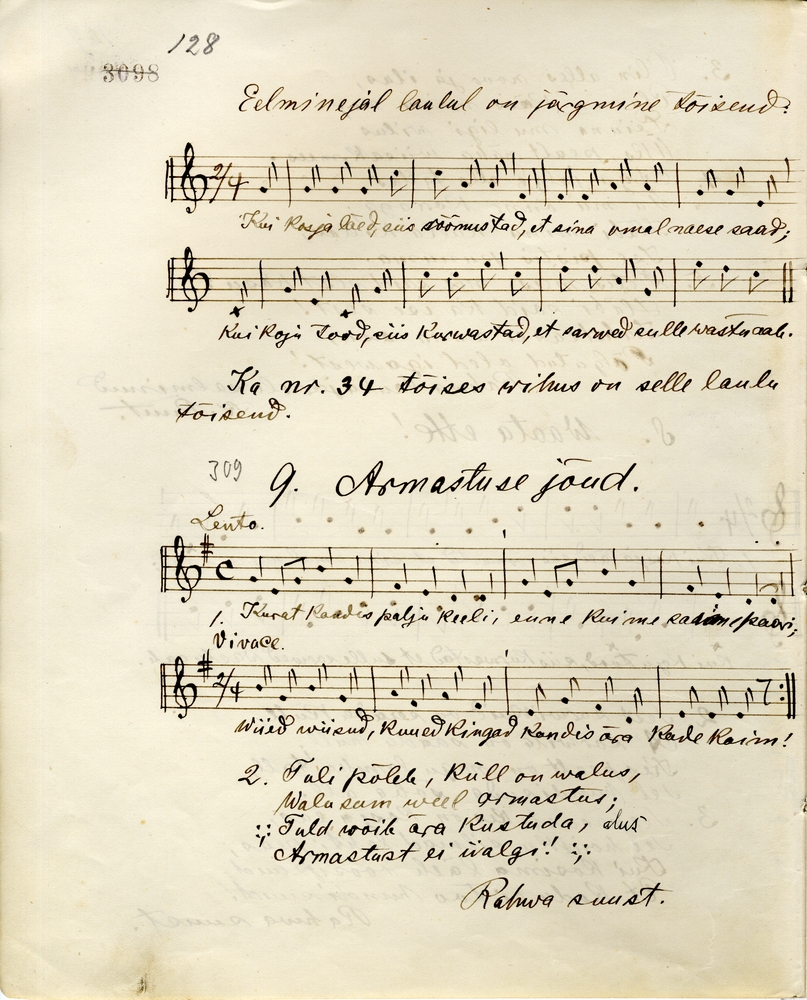 128
3098
Eelminejal laulul on järgmine tõisend:
2/4
Kui kosja lääd, siis rõõmustad, et sina omal naese saad;
Kui koju tood, siis kurwastad, et sarwed sulle wastu aab.
Ka nr. 34 tõises wihus on selle laulu
tõisend.
309
9. Armastuse jõud.
Lento.
C
1. Kurat kaadis palju keeli, enne kui me saime paari;
Vivace.
2/4
Wiied wiisud, kuued kingad kandis ära kade kaim!
2. Tuli põleb, küll on walus,
Walusam weel armastus;
:;: Tuld wõib ära kustuda,
Armastust ei iialgi! :;:
Rahwa suust.